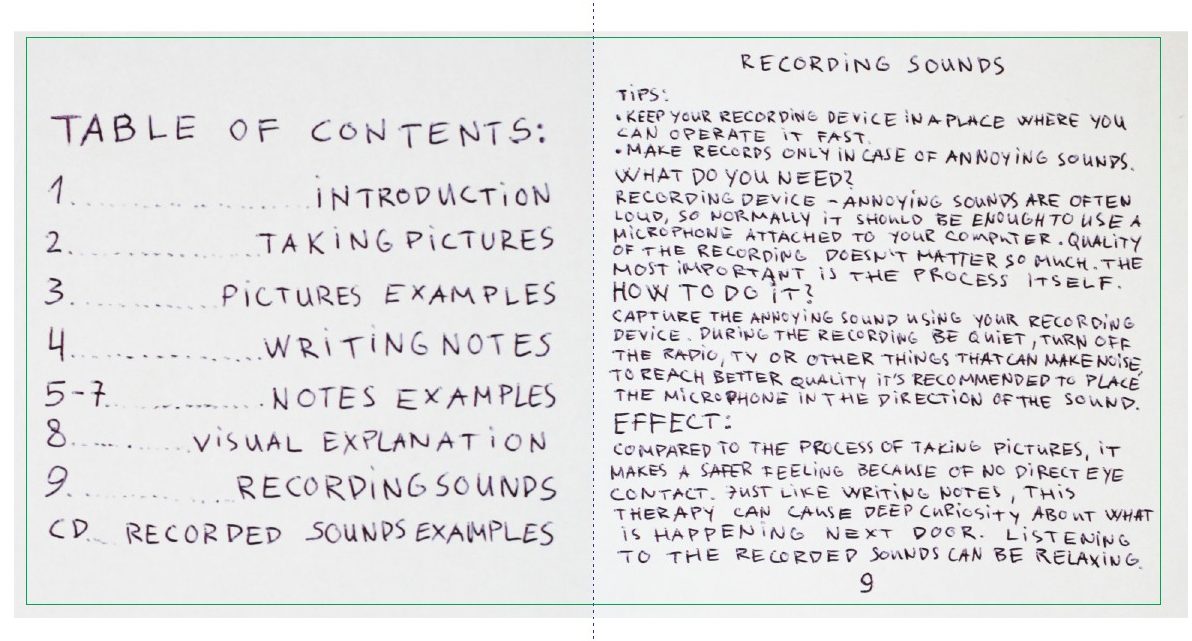 TABLE OF CONTENTS:
1. .................... INTRODUCTION
2. .................... TAKING PICTURES
3. .................... PICTURES EXAMPLES
4. .................... WRITING NOTES
5-7 .................... NOTES EXAMPLES
8. .................... VISUAL EXPLANATION
9. .................... RECORDING SOUNDS
CD... RECORDED SOUNDS EXAMPLES
RECORDING SOUNDS
TIPS:
• KEEP YOUR RECORDING DEVICE IN A PLACE WHERE YOU
CAN OPERATE IT FAST.
• MAKE RECORDS ONLY IN CASE OF ANNOYING SOUNDS.
WHAT DO YOU NEED?
RECORDING DEVICE – ANNOYING SOUNDS ARE OFTEN
LOUD, SO NORMALLY IT SHOULD BE ENOUGH TO USE A
MICROPHONE ATTACHED TO YOUR COMPUTER. QUALITY
OF THE RECORDING DOESN'T MATTER SO MUCH. THE
MOST IMPORTANT IS THE PROCESS ITSELF.
HOW TO DO IT?
CAPTURE THE ANNOYING SOUND USING YOUR RECORDING
DEVICE. DURING THE RECORDING BE QUIET, TURN OFF
THE RADIO, TV OR OTHER THINGS THAT CAN MAKE NOISE,
TO REACH BETTER QUALITY IT'S RECOMMENDED TO PLACE
THE MICROPHONE IN THE DIRECTION OF THE SOUND.
EFFECT:
COMPARED TO THE PROCESS OF TAKING PICTURES, IT
MAKES A SAFER FEELING BECAUSE OF NO DIRECT EYE
CONTACT. JUST LIKE WRITING NOTES, THIS
THERAPY CAN CAUSE DEEP CURIOSITY ABOUT WHAT
IS HAPPENING NEXT DOOR. LISTENING
TO THE RECORDED SOUNDS CAN BE RELAXING.
9